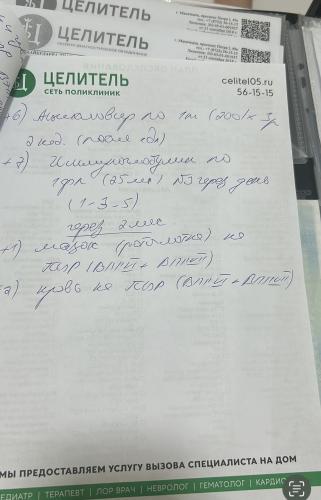 ЦЕЛИТЕЛЬ
ЦЕЛИТЕЛЬ
СЕТЬ ПОЛИКЛИНИК
celitel05.ru
56-15-15
+6) Ацикловир по 1т (200) х 3р
2 нед. (после еды)
+7) Иммуноглобулин по
1фл (25мл) N3 через день
(1-3-5)
через 2 мес
+1) мазок (рото-глотка) на
ПЦР (ВПГVI + ВПГVII)
2) кровь на ПЦР (ВПГVI + ВПГVII)
МЫ ПРЕДОСТАВЛЯЕМ УСЛУГУ ВЫЗОВА СПЕЦИАЛИСТА НА ДОМ
ПЕДИАТР | ТЕРАПЕВТ | ЛОР ВРАЧ | НЕВРОЛОГ | ГЕМАТОЛОГ | КАРДИО